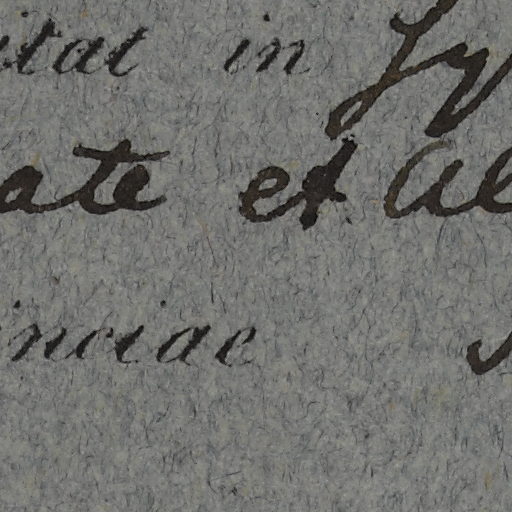 itat in
ate et
inciae